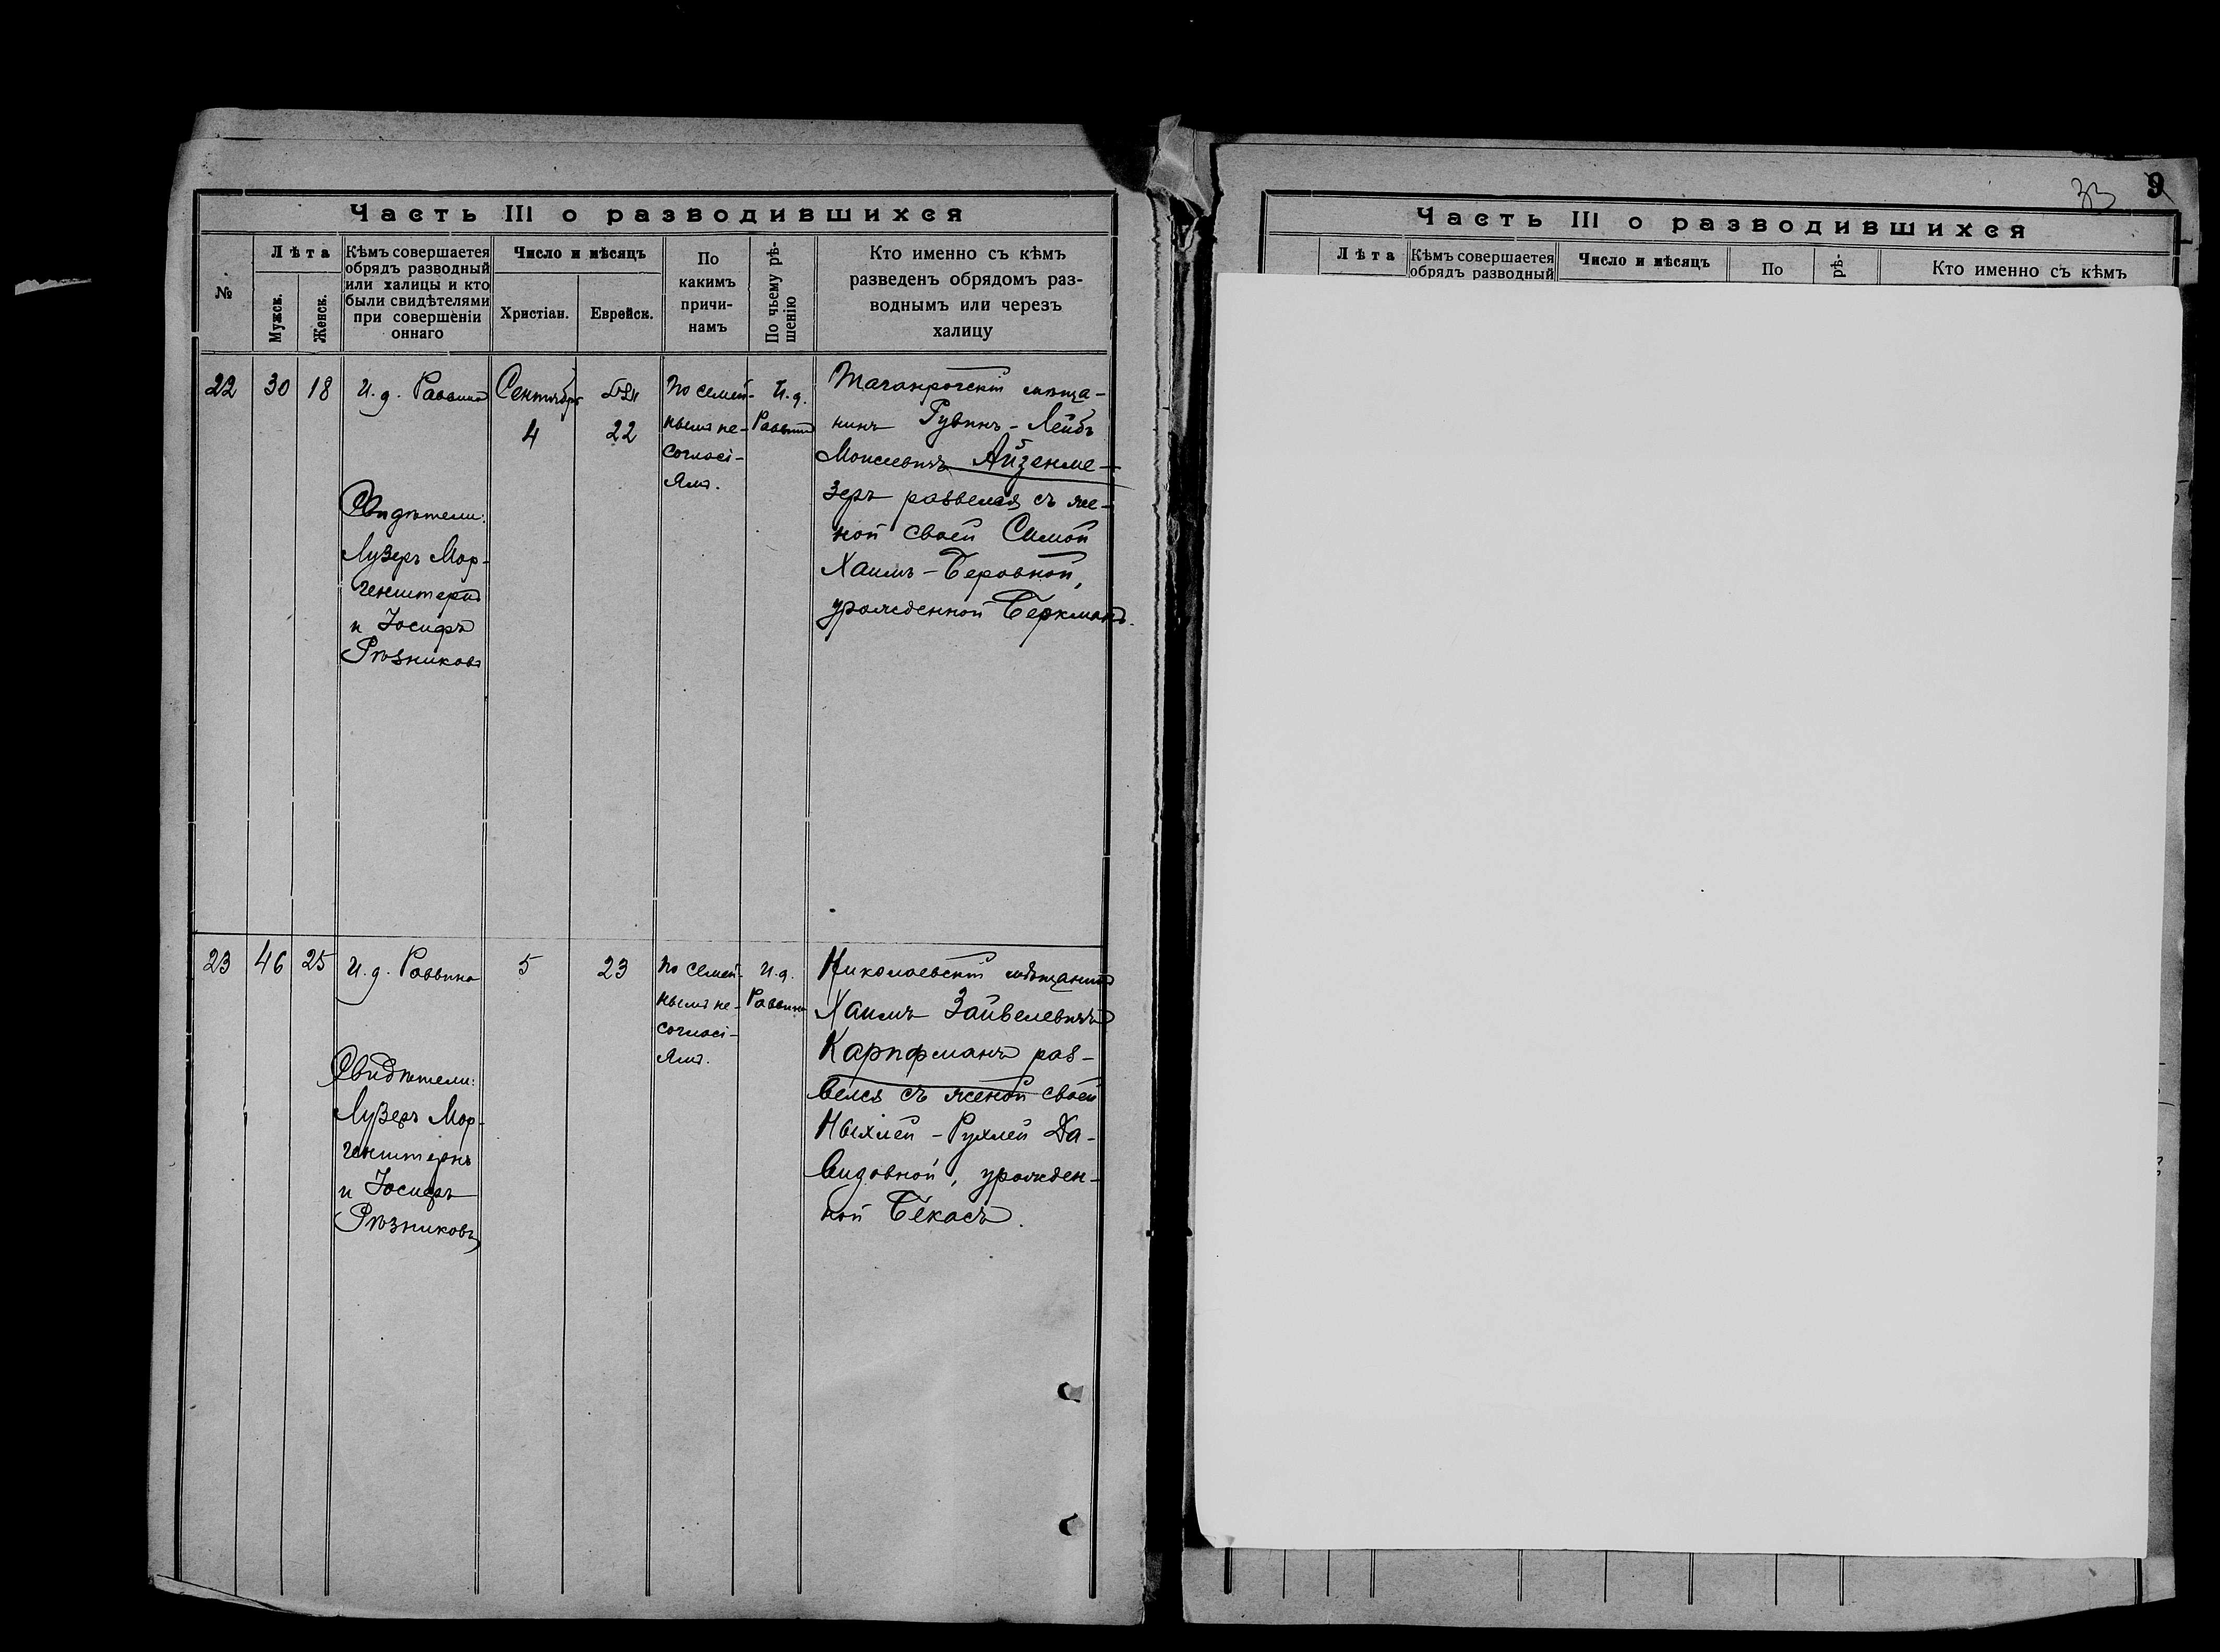 Часть III о разводившихся
№
Лѣта
Мужск.
Женск.
Кѣмъ совершается
обрядъ разводный
или халицы и кто
были свидѣтелями
при совершеніи
оннаго
Число и мѣсяцъ
Христіан.
Еврейск.
По
какимъ
причи-
намъ
По чьему рѣ-
шенію
Кто именно съ кѣмъ
разведенъ обрядомъ раз-
воднымъ или черезъ
халицу
22
30
18
И. д. Раввина
Свидѣтели:
Лузеръ Мор-
генштернъ
и Іосифъ
Рѣзниковъ
Сентябрь
4
אלול
22
По семей-
нымъ не-
согласі-
ямъ.
И. д.
Раввина
Таганрогскій мѣща-
нинъ Рувинъ-Лейбъ
Моисеевичъ Айзенме-
зеръ развелся съ же-
ной своей Симой
Хаимъ-Беровной,
урожденной Беркманъ.
23
46
25
И. д. Раввина
Свидѣтели:
Лузеръ Мор-
генштернъ
и Іосифъ
Рѣзниковъ
5
23
По семей-
нымъ не-
согласі-
ямъ.
И. д.
Раввина
Николаевскій мѣщанинъ
Хаимъ Зайвелевичъ
Карпфманъ раз-
велся съ женой своей
Ныхлей-Рухлей Да-
видовной, урожден-
ной Бекасъ.
33
9
Часть III о разводившихся
Лѣта
Кѣмъ совершается
обрядъ разводный
Число и мѣсяцъ
По
рѣ-
Кто именно съ кѣмъ